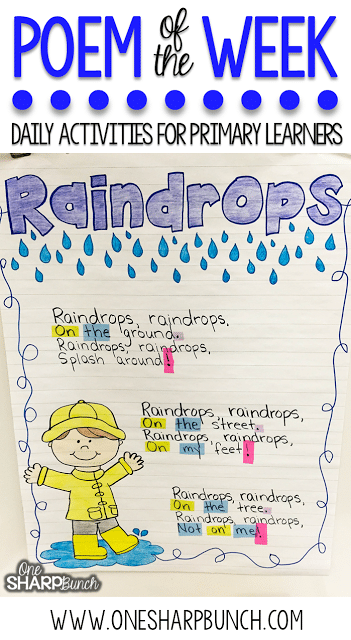 POEM of the WEEK
DAILY ACTIVITIES FOR PRIMARY LEARNERS
Raindrops
Raindrops, raindrops,
On the ground.
Raindrops, raindrops,
Splash around!
Raindrops, raindrops,
On the street.
Raindrops, raindrops,
On my feet!
Raindrops, raindrops,
On the tree.
Raindrops, raindrops,
Not on me!
One
SHARP Bunch
WWW.ONESHARPBUNCH.COM